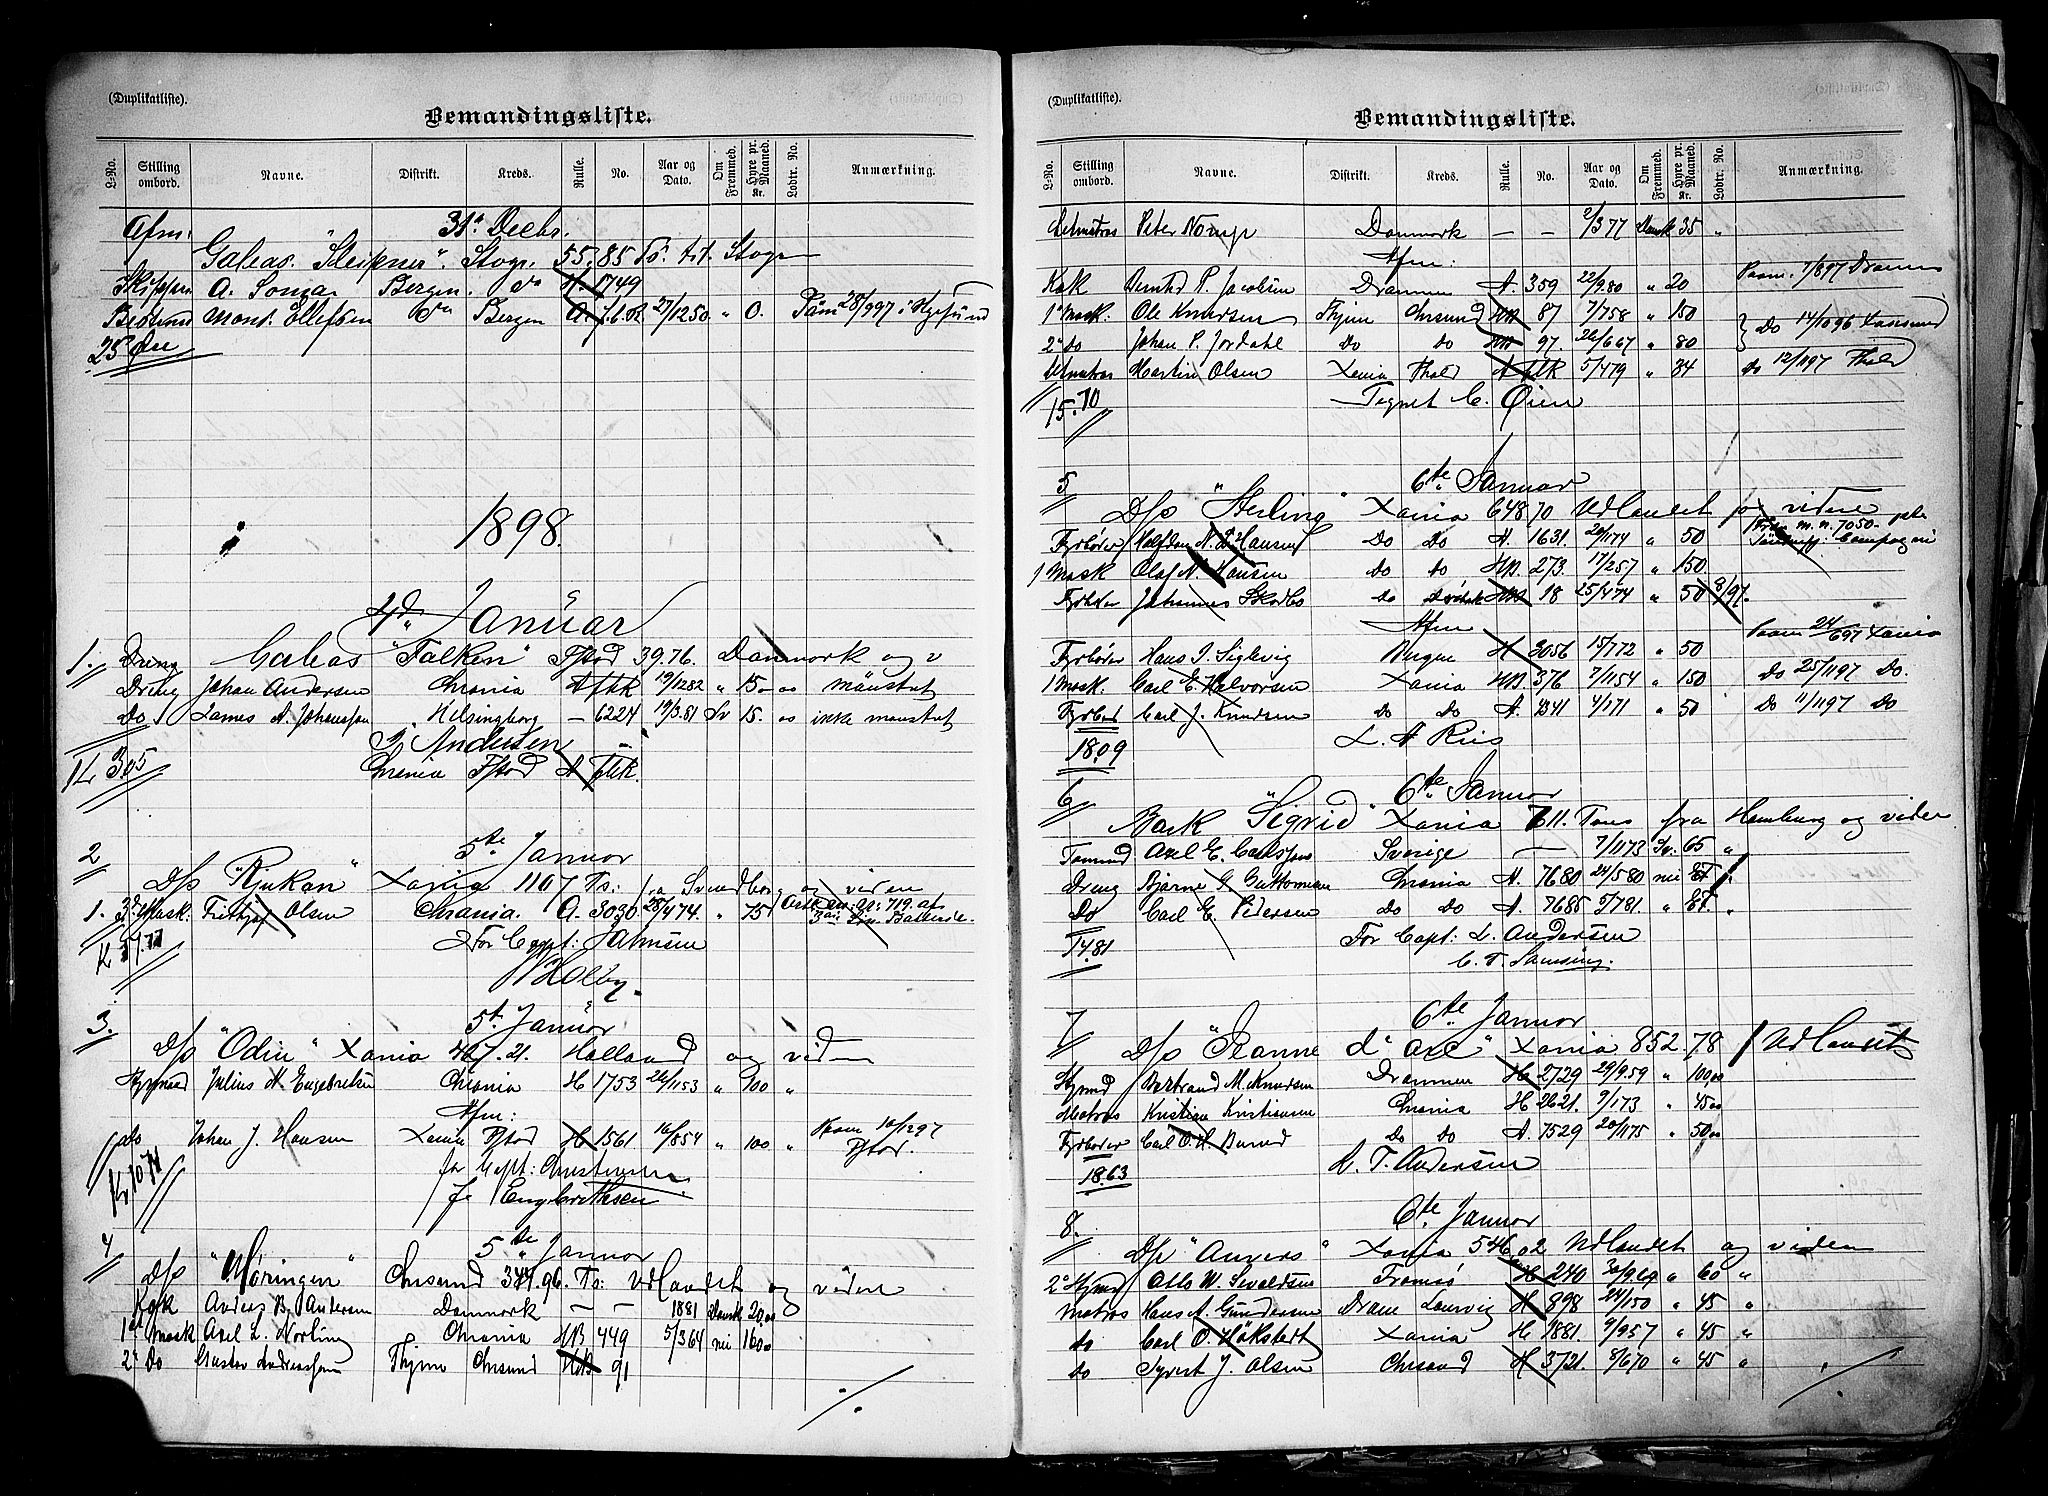 (Duplikatliste).
Bemandingsliste.
L-No. Stilling ombord. Navne. Distrikt. Kreds. Rulle. No. Aar og Dato. Om Fremmed. Hyre pr. Maaned. Kr. Lodtr. No. Anmærkning.
Afm: 31te Decbr.
Galeas. "Sleipner". Stvgr. 55.85 To: til Stvgr
Skipper A. Bergen. do H. 1749
Bedstmd Mons. Ellefsen do Bergen A. 27/12 50 " 0. Paam 28/9 97 i Hgesund
25 Øre
1898.
4de Januar
1. Galeas "Falken" Fstad 39.76. Danmark og v
Dreng Johan Andersen Chrania A 19/12 82 " 15. " mönstret
Do James A. Johansson Helsingborg – 6224 19/3.81 Sv 15. " ikke mönstret
J. Andersen
Chrania Fstad A
3.05
2 5te Januar
D/s "Rjukan" Xania 1107 Ts: fra Svendborg og viden
1. 3d Mask. Frithjof Olsen Chrania. A. 3090 25/4 74 " 75
K 37.77 For Capt: Jahnsen
Holby
3. 5te Januar
D/s "Odin" Xania 407.21. Holland og viden
Styrmd Julius N. Engebretsen Chrania H 1753 26/11 53 " 100 "
Afm:
Do Johan J. Hansen Xania Fstad H 1561 16/8 54 " 100 " Paam 10/12 97 Fstad.
Kr 10.74 for Capt: Christensen
Engebrethsen
4 5te Januar
D/s "Mæringen" Chrsund 344.96. Ts: Udlandet og viden
Kok Anders B. Andersen Danmark – – 1881 Dansk 20.00
1st Mask Axel L. Norling Chrania HB 449 5/3 64 nei 160.00
2 Do Gustav Andreassen Thjem Chrsund HB 91
(Duplikatliste).
Bemandingsliste.
L-No. Stilling ombord. Navne. Distrikt. Kreds. Rulle. No. Aar og Dato. Om Fremmed. Hyre pr. Maaned. Kr. Lodtr. No. Anmærkning.
Letmatros Peter Norup Danmark – – 2/3 77 Dansk 35 "
Afm:
Kok Bernhd P. Jacobsen Drammen A. 359 22/9 80 " 20 Paam. 1/8 97 Dramen
1st Mask. Ole Knudsen Thjem Chrsund HB 87 7/7 58 " 150 Do 14/10 96 Xansund
2 Do Johan P. Jordahl Do Do HB 97. 26/6 67 " 80
Letmatros Martin Olsen Xania Fhald A 5/4 79 " 34 do 12/1 97 Fhald
15.70 Tegnet C. Øien
5 6te Januar
D/s "Sterling" Xania 648.70 Udlandet og videre
Fyrbøder Halfdan N. B. Hansen Do Do A. 1631. 20/1 74 " 50
1 Mask Olaf N. Hansen do do HB. 273. 17/2 57 " 150.
Fyrbøder Johannes Skodbo do HB 18 25/4 74 " 50 8/97.
Afm
Fyrbøder Hans J. Siglevig Bergen H 3056 15/7 72 " 50 Paam 24/6 97 Xania
1 Mask. Carl E. Halvorsen Xania HB 376 2/11 54 " 150 Do 25/11 97 Do.
Fyrbød Carl J. Knudsen Do Do A. 4341 4/1 71 " 50 Do 11/11 97 Do
18.09 L. A Riis
6 6te Januar
Bark "Sigrid" Xania 711. Tons fra Hamburg og viden
Tømmd Axel E. Carlsson Sverige – 7/11 73 Sv. 65 "
Dreng Bjarne G. Guttormsen Chrania A. 7680 24/5 80 nei
Do Carl E. Pedersen Do Do A. 7685 5/7 81. "
14.81 For Capt: L. Andersen
C. T. Samsing.
7 6te Januar
D/s "Jeanne d'Arc" Xania 852.78 Udlandet
Styrmd Bertrand M. Knudsen Drammen H 2729 29/9.59 " 100.00
Matros Kristian Kristiansen Chrania H 2621. 9/1 73 " 45.00
Fyrbøder Carl O. H. Berund Do Do A. 7529 20/1 75 " 50.00
18.63 L. T. Andersen
8. 6te Januar
D/s "Anvers" Xania 546.02 Udlandet og viden
2 Styrmd Otto W. Sivaldsen Tromsø H 240 30/9.69 " 60 "
Matros Hans A. Gundersen Dram Laurvig H 898 24/1 50 " 45 "
do Carl O. Håkstedt Xania H 1881. 9/9 57 " 45 "
do Syvert J. Olsen Chrsand H 3721. 8/6 70 " 45 "